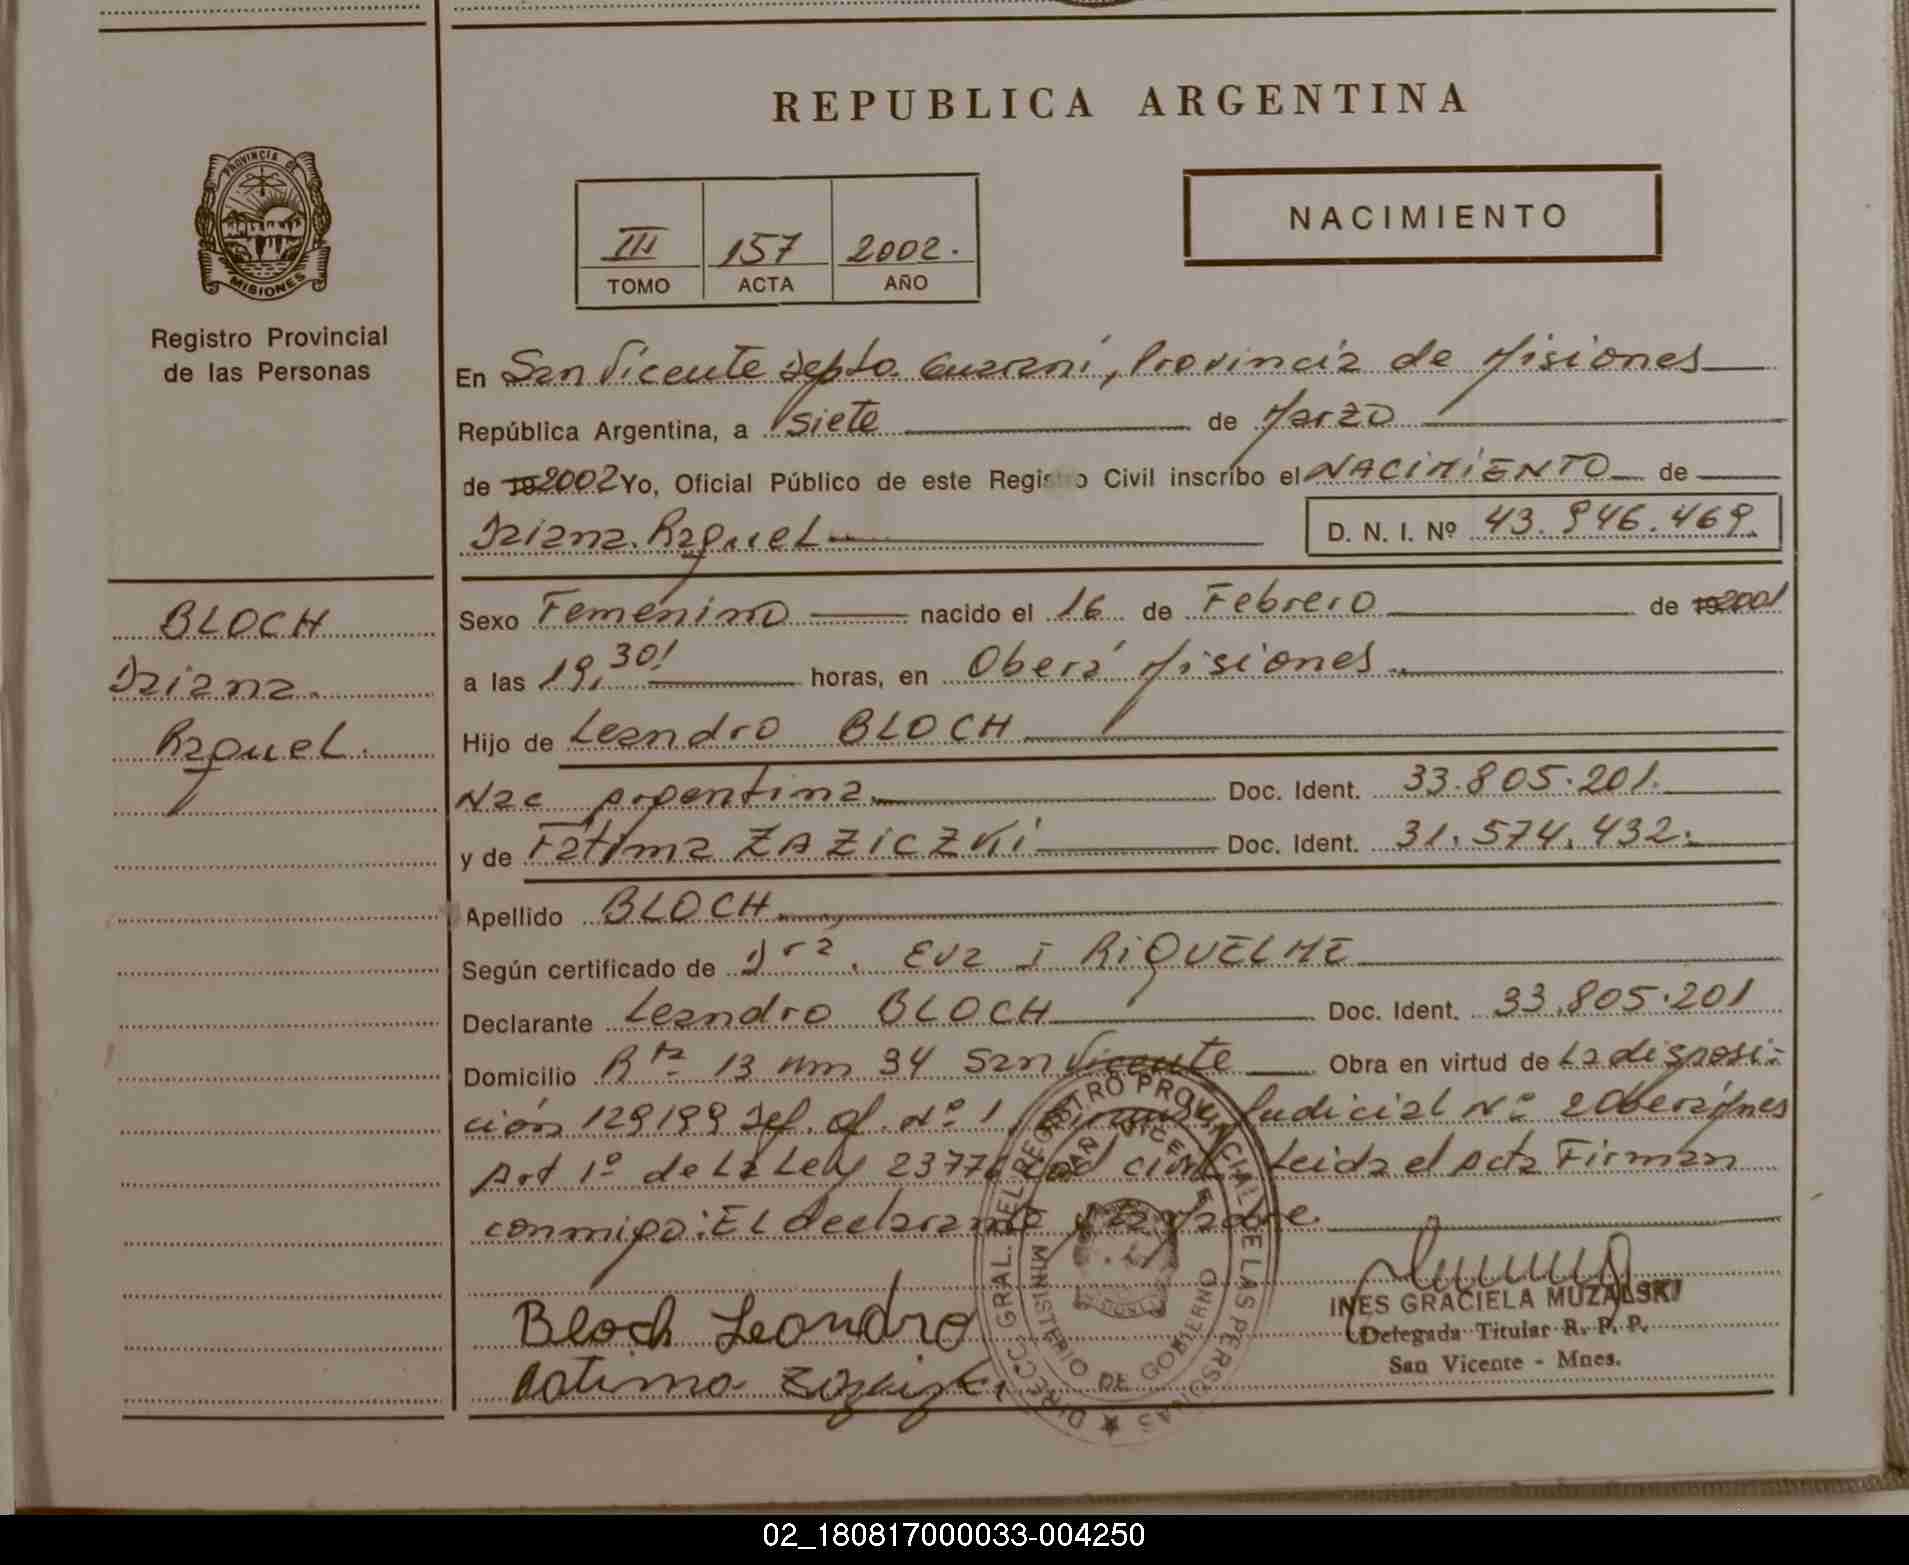 REPUBLICA ARGENTINA
PROVINCIA DE MISIONES
Registro Provincial
de las Personas
III 157 2002.
TOMO ACTA AÑO
NACIMIENTO
En San Vicente Depto. Guaraní, Provincia de Misiones
República Argentina, a siete de Marzo
de 2002 Yo, Oficial Público de este Registro Civil inscribo el NACIMIENTO de
Daiana Raquel D. N. I. Nº 43.946.469.
BLOCH
Daiana
Raquel.
Sexo Femenino nacido el 16 de Febrero de 2001
a las 19,30 horas, en Oberá Misiones
Hijo de Leandro BLOCH
Nac argentina Doc. Ident. 33.805.201.
y de Fátima ZAZICZKi Doc. Ident. 31.574.432.
Apellido BLOCH
Según certificado de Dra. Eva I RiQUELME
Declarante Leandro BLOCH Doc. Ident. 33.805.201
Domicilio Rta 13 Km 34 San Vicente Obra en virtud de La disposi-
ción 129/99 Def. of. Nº 1 Judicial Nº 2 Oberá
Art 1º de La Ley Leida el Acta Firman
conmigo: EL declarante y la Madre.
Bloch Leandro
Fatima
DIRECC. GRAL. DEL REGISTRO PROVINCIAL DE LAS PERSONAS
SAN VICENTE
MINISTERIO DE GOBIERNO
INES GRACIELA MUZALSKI
Delegada Titular R. P. P.
San Vicente - Mnes.
02_180817000033-004250